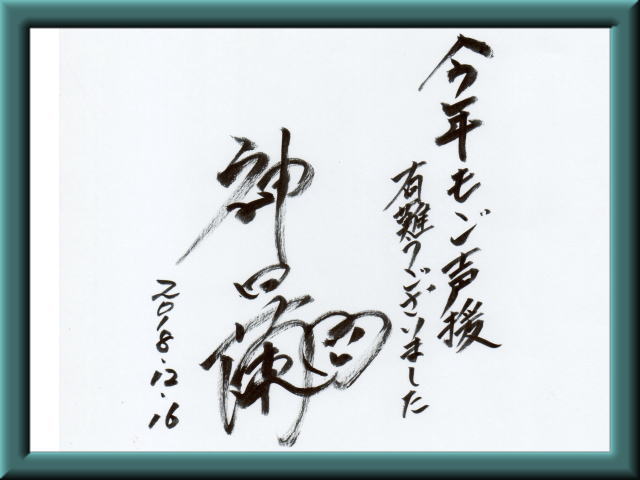 今年もご声援
有難うございました
神田陳円
2018.12.16